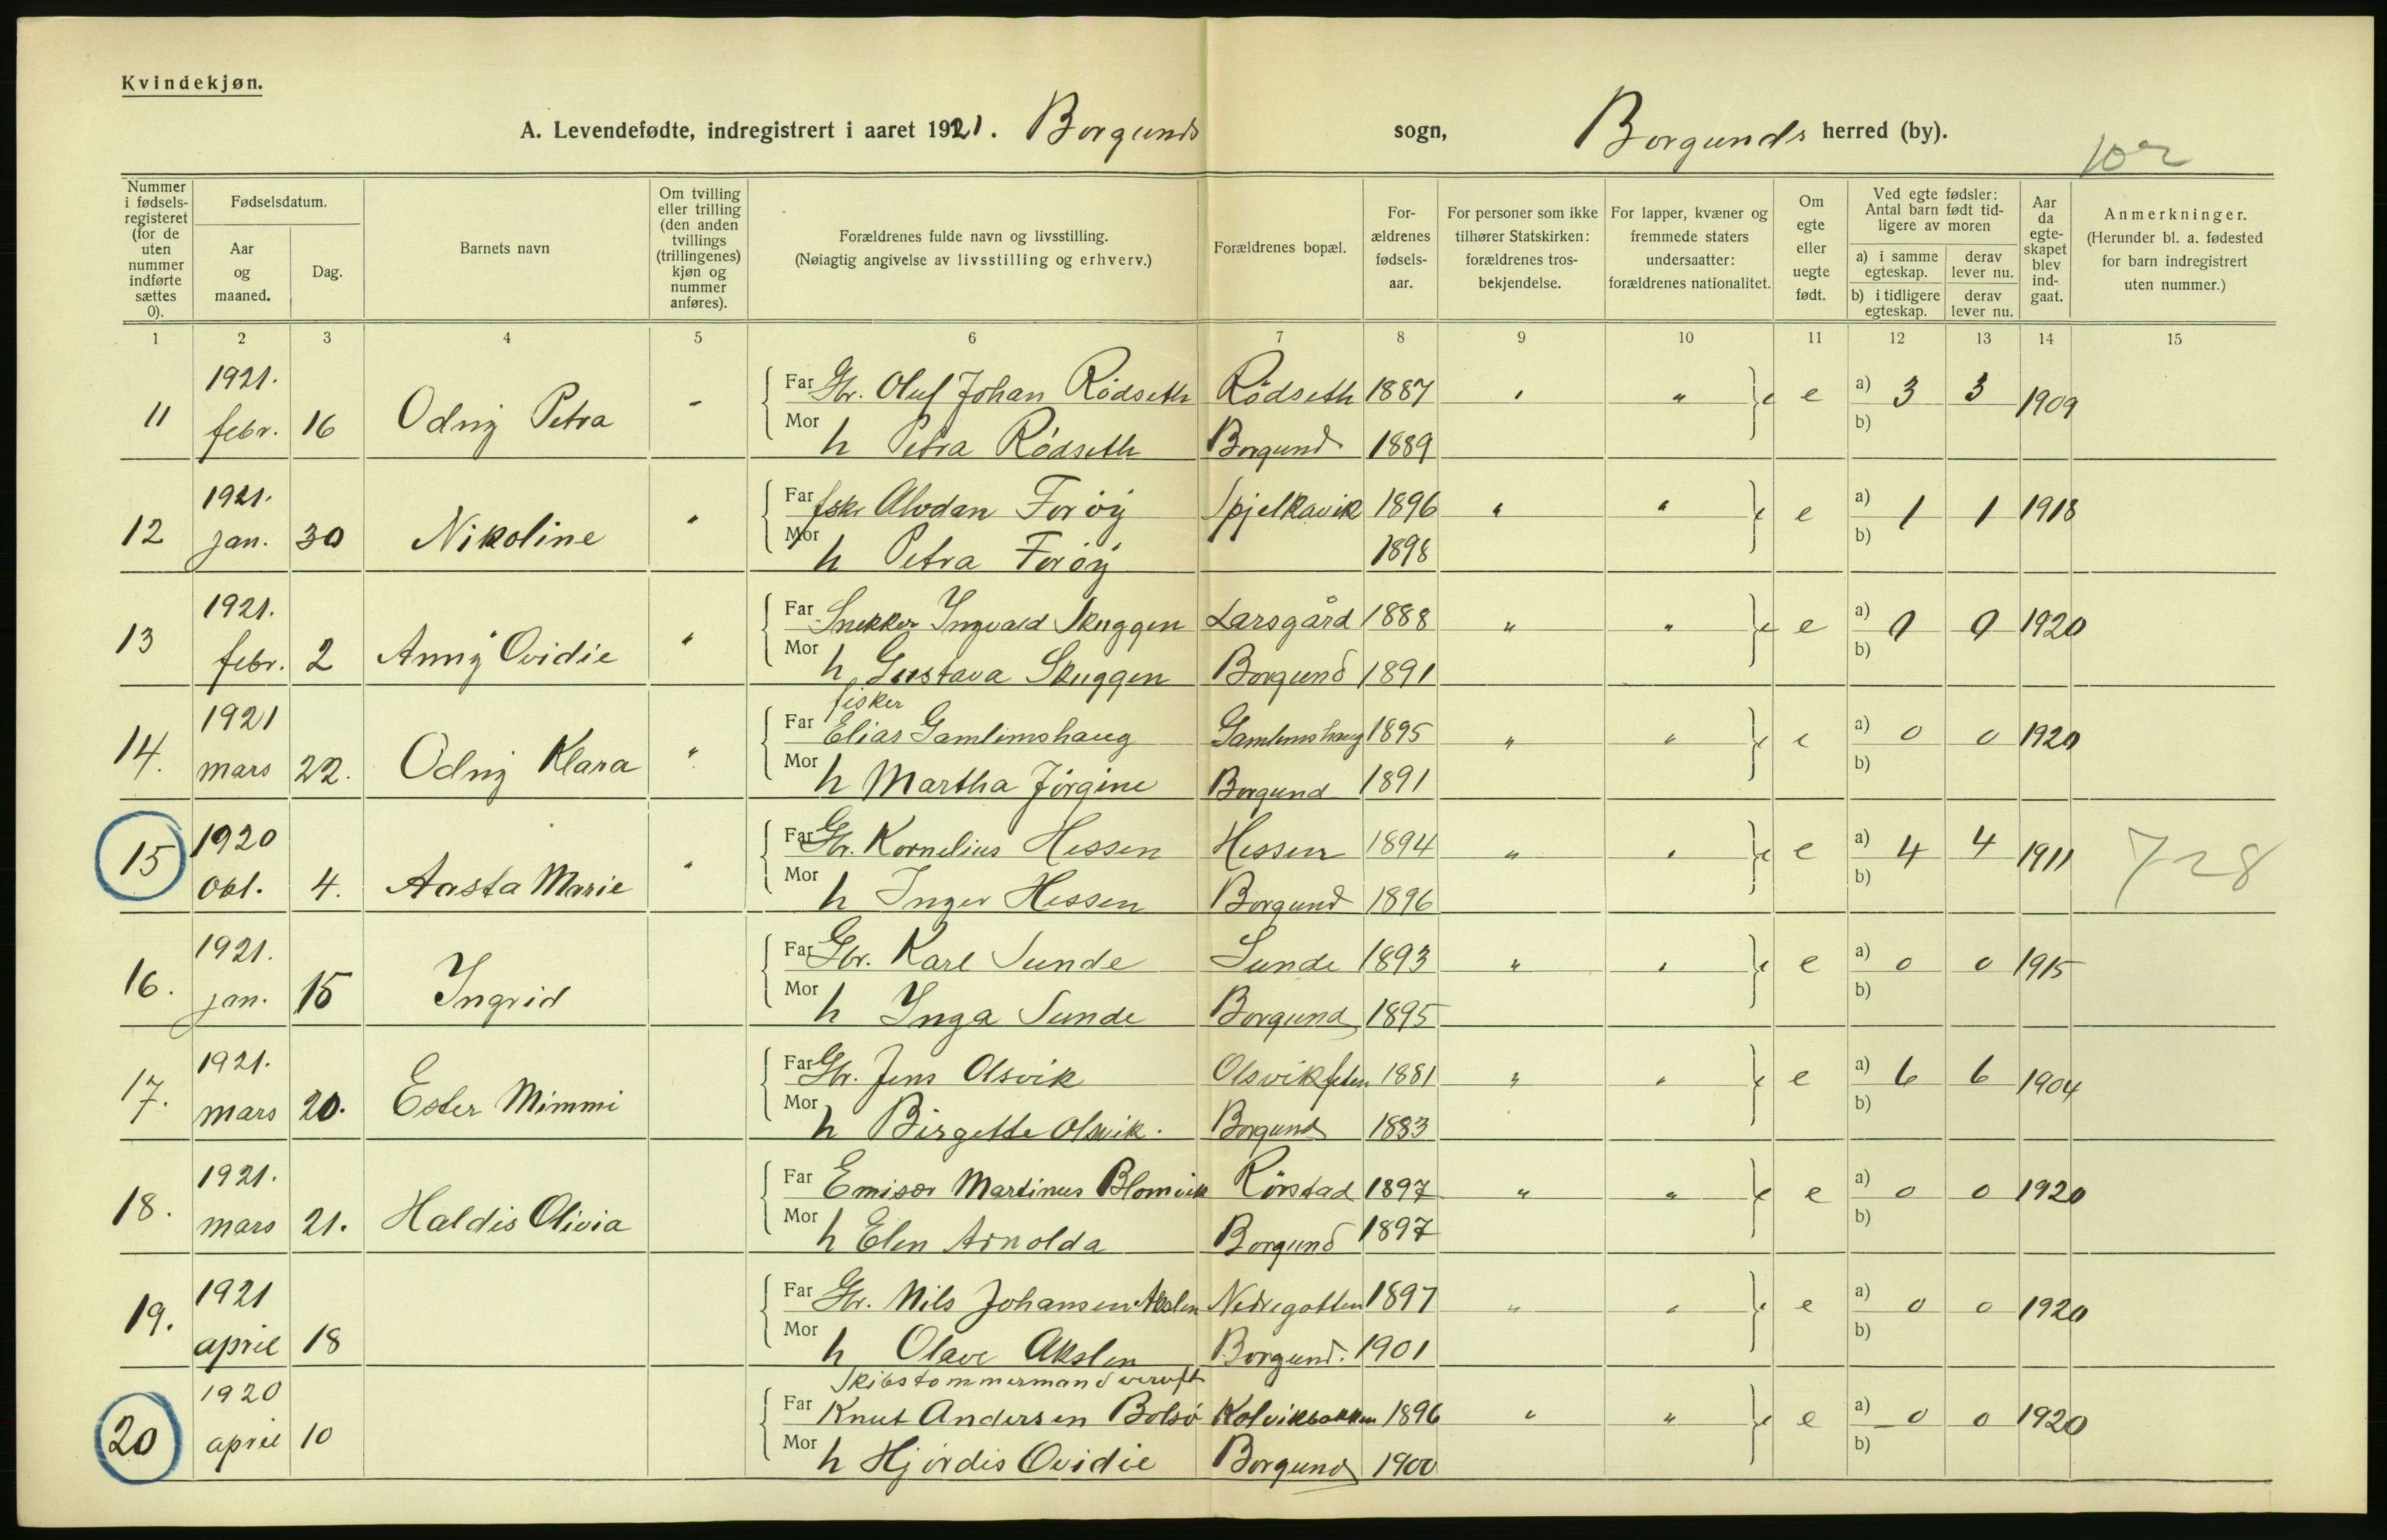 Kvindekjøn.
A. Levendefødte, indregistrert i aaret 1921. Borgunds sogn, Borgunds herred (by).
102
Nummer i fødsels-registeret (for de uten nummer indførte sættes 0).
Fødselsdatum.
Aar og maaned.
Dag.
Barnets navn
Om tvilling eller trilling (den anden tvillings (trillingenes) kjøn og nummer anføres).
Forældrenes fulde navn og livsstilling.
(Nøiagtig angivelse av livsstilling og erhverv.)
Forældrenes bopæl.
For-ældrenes fødsels-aar.
For personer som ikke tilhører Statskirken: forældrenes tros-bekjendelse.
For lapper, kvæner og fremmede staters undersaatter: forældrenes nationalitet.
Om egte eller uegte født.
Ved egte fødsler: Antal barn født tid-ligere av moren
a) i samme egteskap.
derav lever nu.
b) i tidligere egteskap.
derav lever nu.
Aar da egte-skapet blev ind-gaat.
Anmerkninger.
(Herunder bl. a. fødested for barn indregistrert uten nummer.)
1 2 3 4 5 6 7 8 9 10 11 12 13 14 15
1921. Far Gbr. Oluf Johan Rødseth Rødseth 1887 " " e e a) 3 3 1909
11 febr. 16 Odny Petra - Mor h Petra Rødseth Borgund 1889 b)
1921. Far fisk. Alvdan Forøy Spjelkavik 1896 " " e e a) 1 1 1918
12 jan. 30 Nikoline " Mor h Petra Forøy 1898 b)
1921. Far Snekker Ingvald Skuggen Larsgård 1888 " " e e a) 0 0 1920
13 febr. 2 Anny Ovidie " Mor h Gustava Skuggen Borgund 1891 b)
fisker
1921 Far Elias Gamlemshaug Gamlemshaug 1895 " " e e a) 0 0 1920
14. mars 22. Odny Klara " Mor h Martha Jørgine Borgund 1891 b)
1920 Far Gbr. Kornelius Hessen Hessen 1894 " " e e a) 4 4 1911 728
15 Okt. 4. Aasta Marie " Mor h Inger Hessen Borgund 1896 b)
1921. Far Gbr. Karl Sunde Sunde 1893 " " e e a) 0 0 1915
16. jan. 15 Ingrid Mor h Inga Sunde Borgund 1895 b)
1921. Far Gbr. Jens Olsvik Olsvikfeten 1881 " " e e a) 6 6 1904
17. mars 20. Ester Mimmi Mor h Birgette Olsvik. Borgund 1883 b)
1921. Far Emisær Martinus Blomvik Rørstad 1897 " " e e a) 0 0 1920
18. mars 21. Haldis Olivia Mor h Elen Arnolda Borgund 1897 b)
1921 Far Gbr. Nils Johansen Akslen Nedregotten 1897 " " e e a) 0 0 1920
19. april 18 Mor h Olave Akslen Borgund. 1901 b)
Skibstømmermand
1920 Far Knut Andersen Bolsø Kolvikbakken 1896 " " e e a) 0 0 1920
20 april 10 Mor h Hjørdis Ovidie Borgund 1900 b)